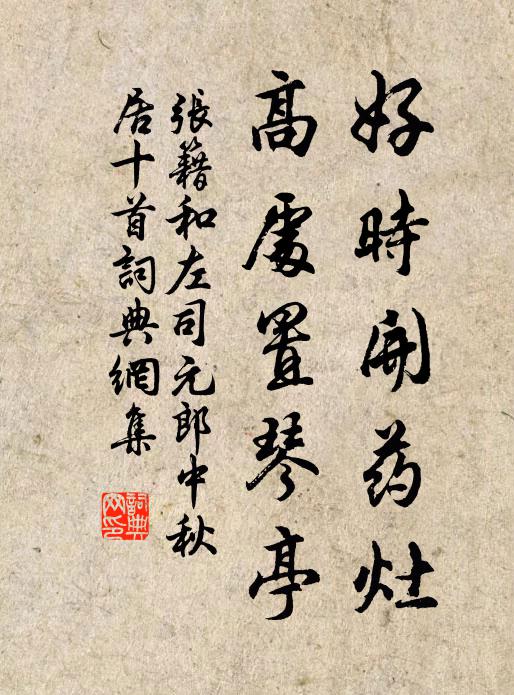 好時開药灶
高處置琴亭
張籍和左司元郎中秋
居十首詞典網集
詞典
网印